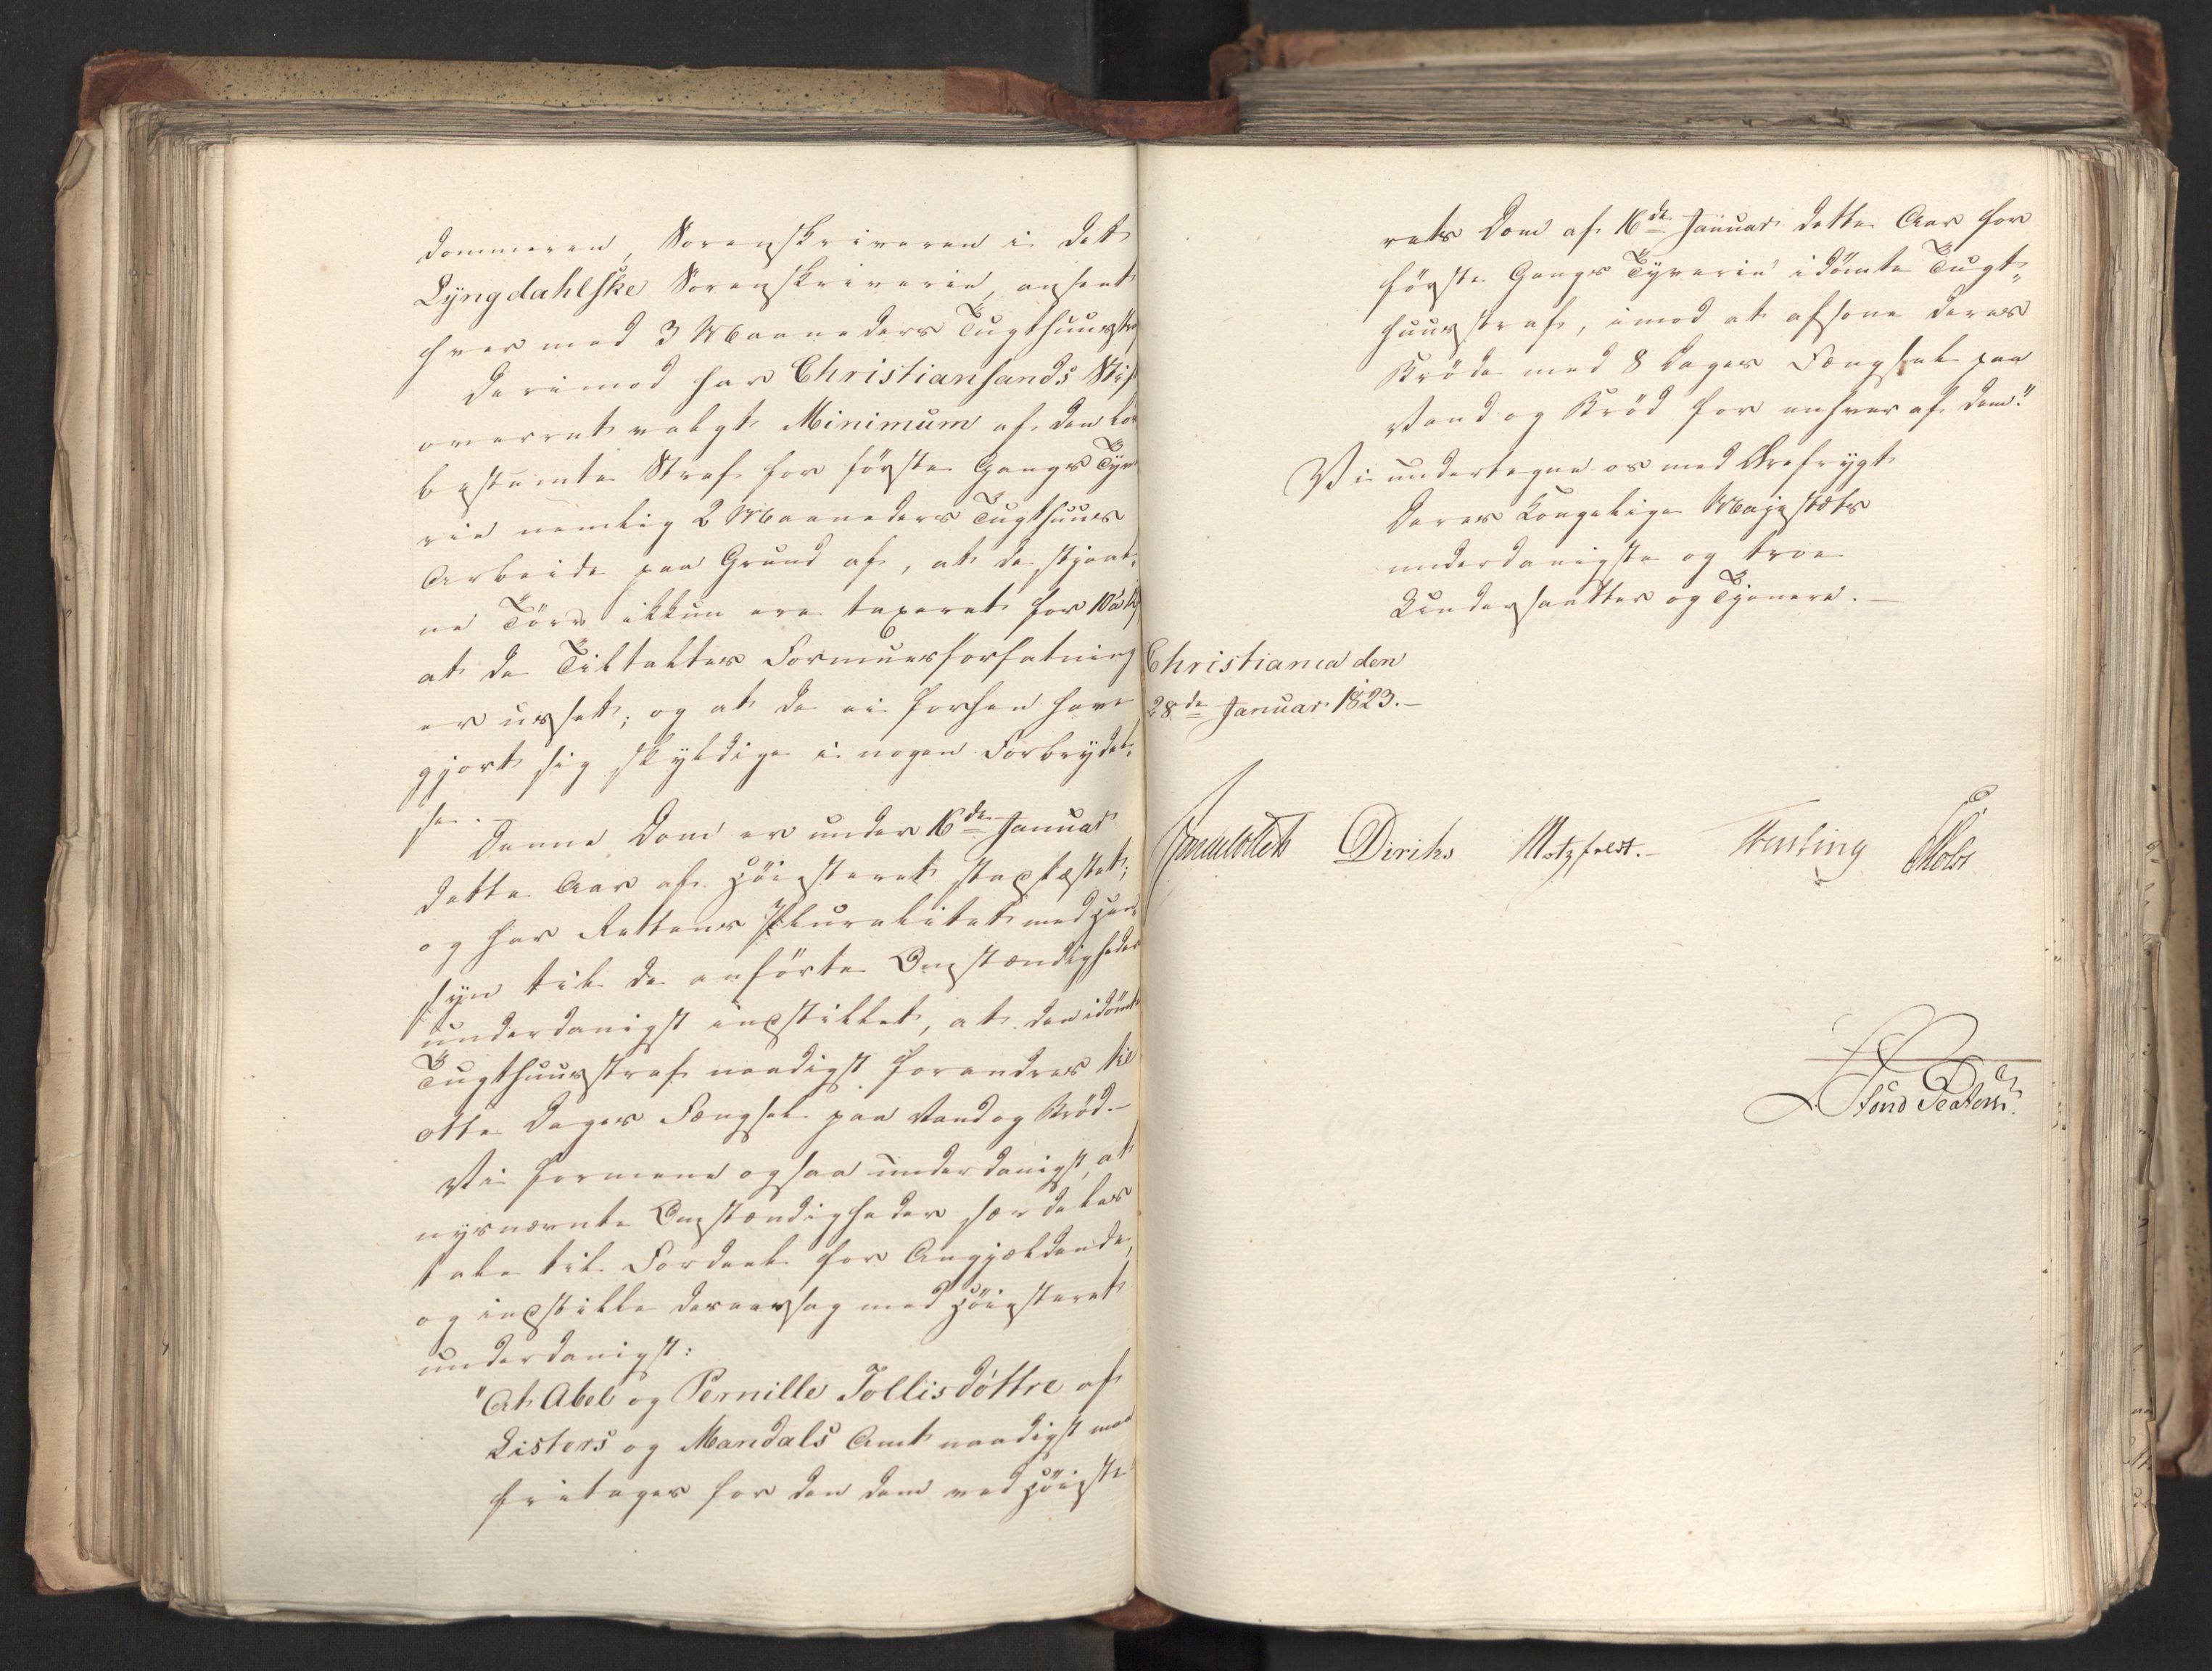 dommeren, Sorenskriveren i det
Lÿngdahlske Sorenskriverie, anseet
hver med 3 Maaneders Tugthuusstraf
Derimod har Christiansands Stifts
overret valgt Minimum af den lov
bestemte Straf for første Gangs Tÿve
rie nemlig 2 Maaneders Tugthuus
Arbeide paa Grund af, at de stjaal,
ne Törv ikkun ere taxeret for 10 a
at de Tiltaltes Formuesforfatning
er usset; og at de ei forhen have
gjort sig skyldige i nogen Forbrÿdel,
se.
Denne Dom er under 16de Januar
dette Aar af Höiesteret stadfæstet;
og har Rettens Pluralitet med Hen,
sÿn til de anförte Omstændigheder
underdanigst indstillet, at den idömte
Tugthuusstraf naadigst forandres til
otte Dages Fængsel paa Vand og Bröd.-
Vi formene ogsaa underdanigst, at
nysnævnte Omstændigheder særdeles
tale til Fordeel for Angjældende,
og indstille desaarsag med Höiesteret
underdanigst:
"At Abel og Pernille Tollisdöttre af
Listers og Mandals Amt naadigst maa
fritages for den dem ved Höieste
rets Dom af 16de Januar dette Aar for
förste Gangs Tÿverie idömte Tugt,,
huusstraf, imod at afsone deres
Bröde med 8 Dages Fængsel paa
Vand og Bröd for enhver af dem."
Vi undertegne os med Ærefrygt
Deres Kongelige Majestæts
underdanigste og troe
Undersaatter og Tjenere.-
Christiania den
28de Januar 1823.-
Sommerhielm Diriks Motzfeldt.- Krebs